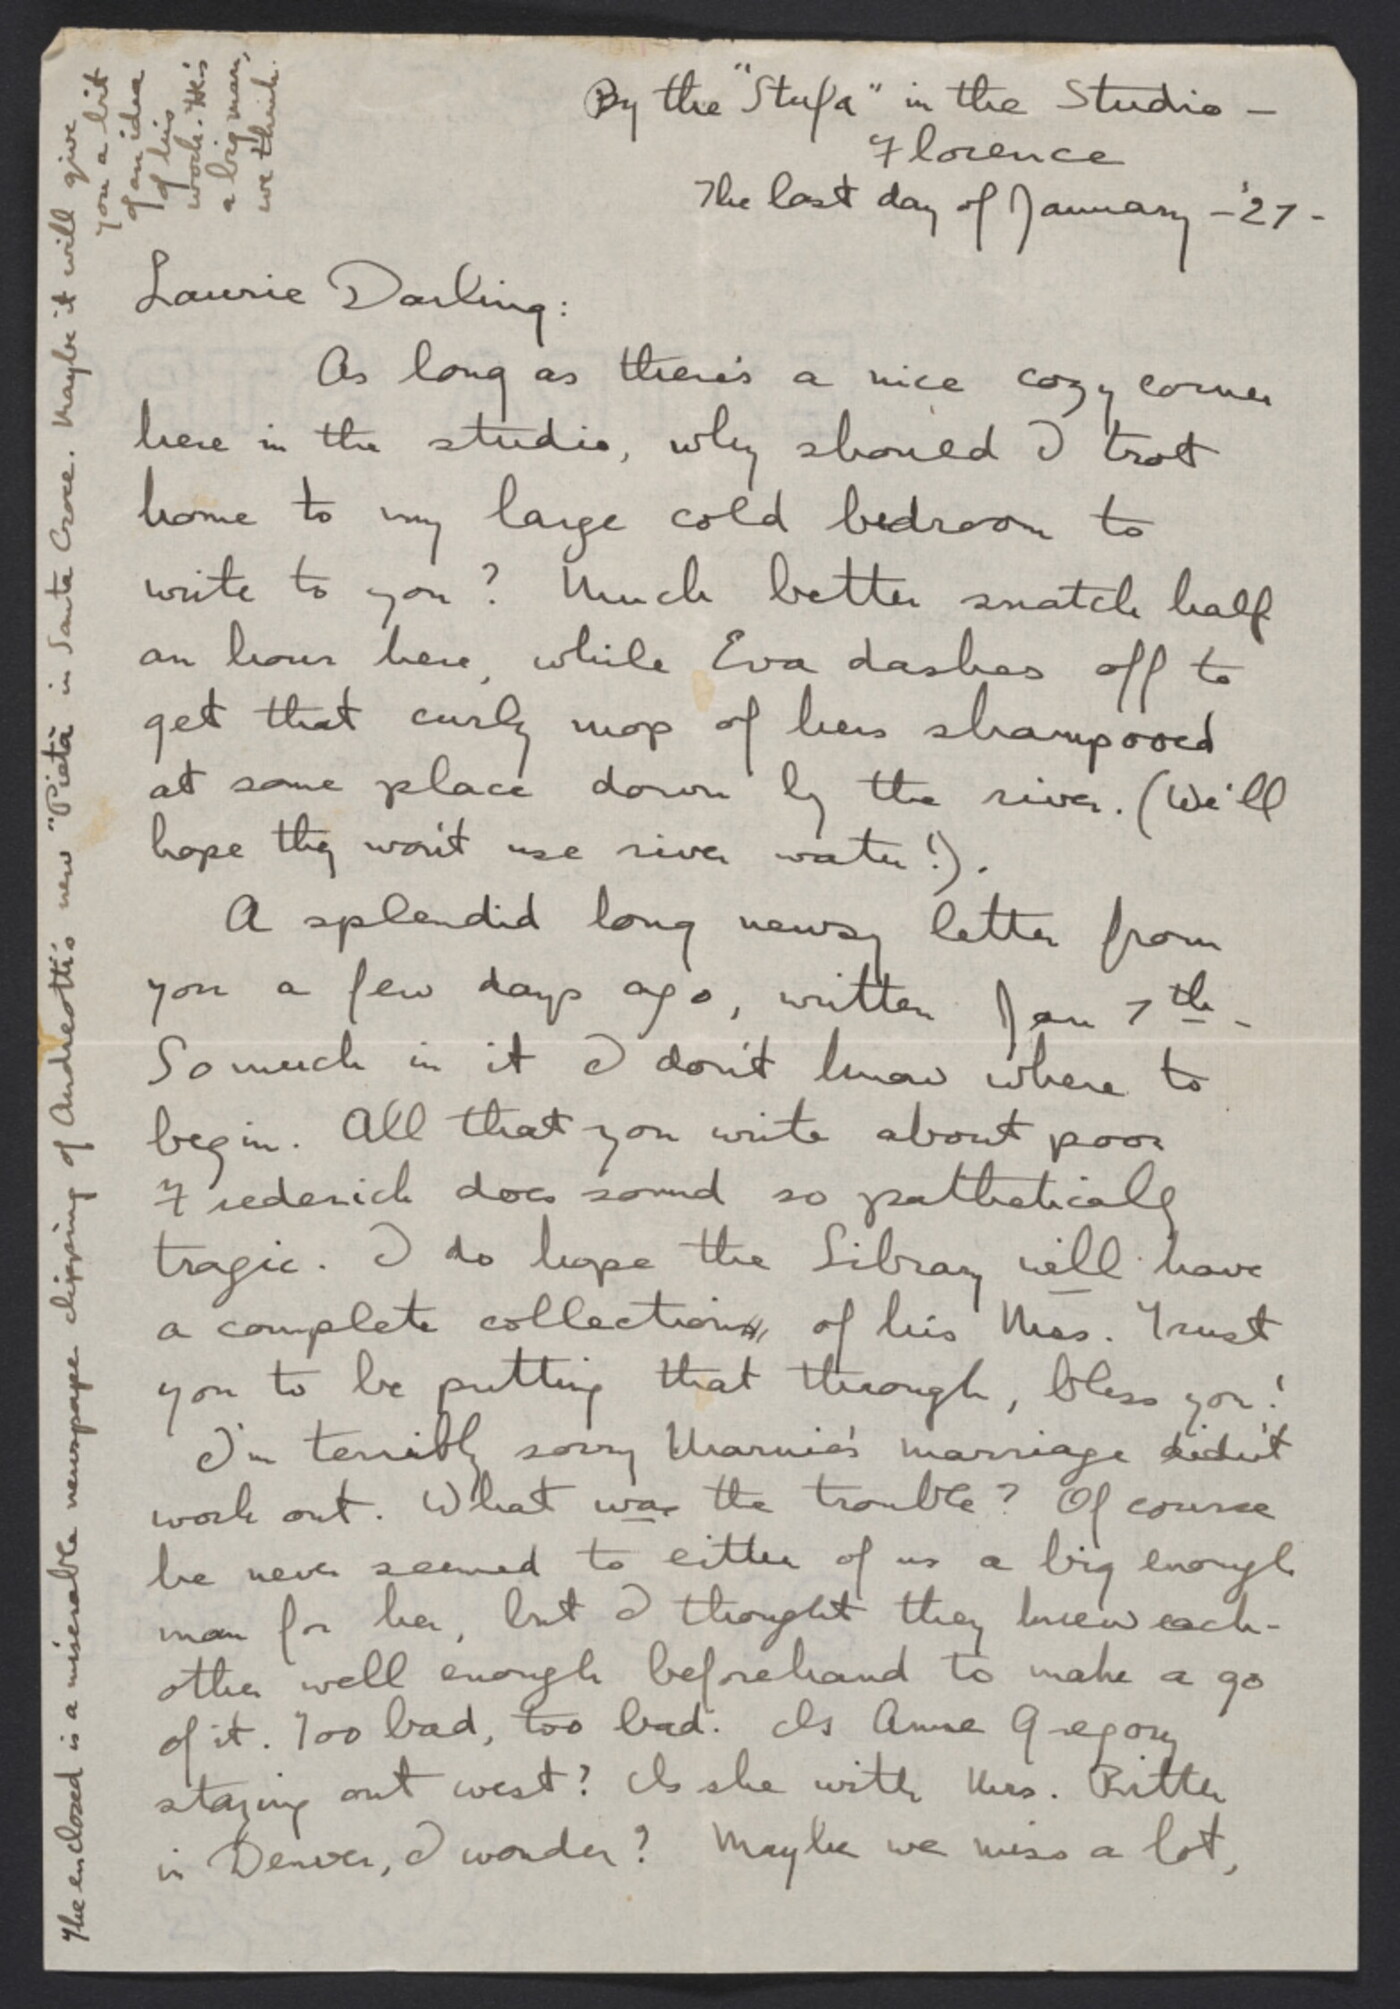 By the "Stufa" in the Studio —
Florence
The last day of January — '27 -
Laurie Darling:
As long as there's a nice cozy corner
here in the studio, why should I trot
home to my large cold bedroom to
write to you? Much better snatch half
an hour here, while Eva dashes off to
get that curly mop of hers shampooed
at some place down by the river. (We'll
hope they won't use river water!).
A splendid long newsy letter from
you a few days ago, written Jan 7th -
So much in it I don't know where to
begin. All that you write about poor
Frederick does sound so pathetically
tragic. I do hope the Library will have
a complete collection of his Mss. Trust
you to be putting that through, bless you!
I'm terribly sorry Marnie's marriage didn't
work out. What was the trouble? Of course
he never seemed to either of us a big enough
man for her, but I thought they knew each-
other well enough beforehand to make a go
of it. Too bad, too bad. Is Anne Gregory
staying out west? Is she with Mrs. Ritter
in Denver, I wonder? Maybe we miss a lot,
The enclosed is a miserable newspape clipping of Andreotti's new "Pietà in Santa Croce. Maybe it will give
you a bit
of an idea
of his
work. He's
a big man,
we think.